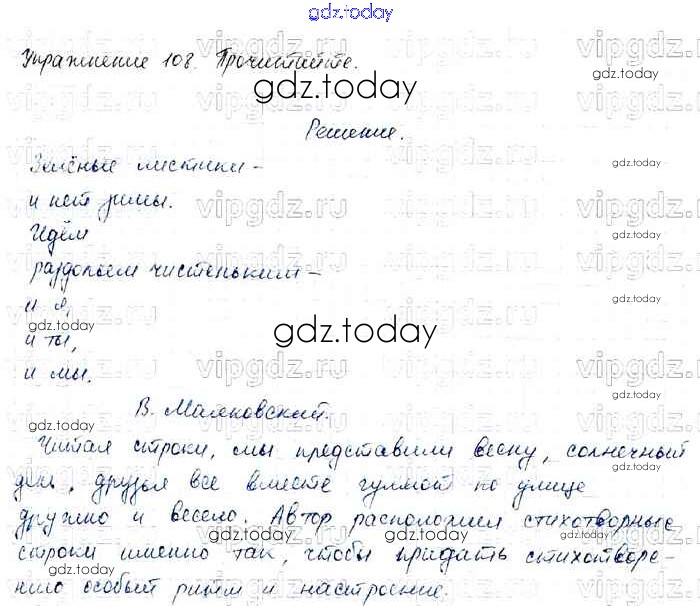 gdz.today
Упражнение 108. Прочитайте.
gdz.today
Решение.
gdz.today
Зелёные листики –
и нет зимы.
Идём
gdz.today
раздольем чистеньким –
и я,
gdz.today
gdz.today
и ты,
gdz.today
и мы.
В. Маяковский.
gdz.today
Читая строки, мы представили весну, солнечный
день, друзья все вместе гуляют по улице
gdz.today
дружно и весело. Автор расположил стихотворные
gdz.today
строки именно так, чтобы придать стихотворе-
нию особый ритм и настроение.
gdz.today
vipgdz.ru